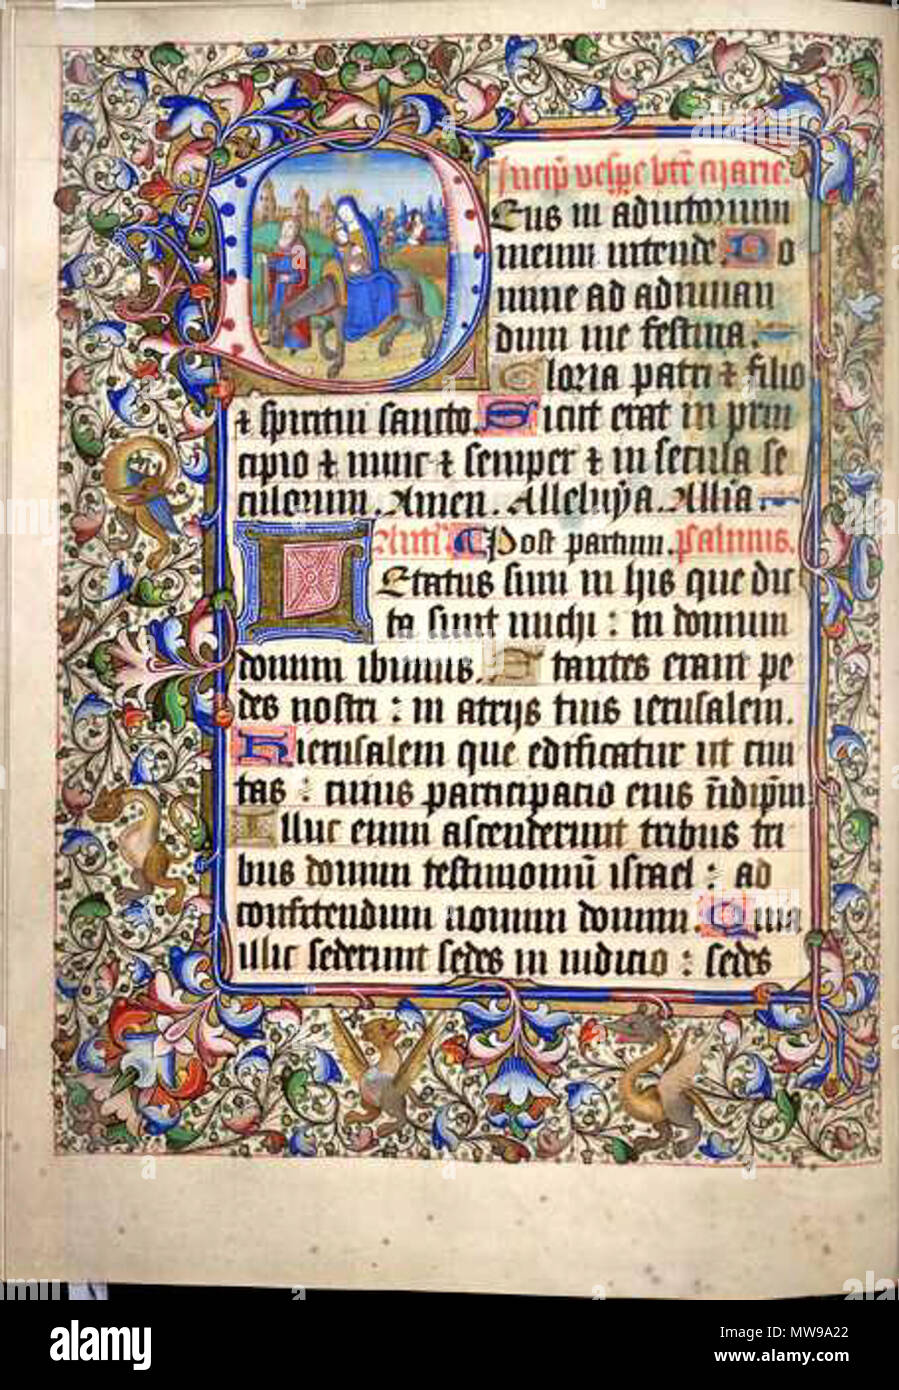 Incip̄ vesp̄e btē marie.
Deus in adiutorium
meum intende. Do
mine ad adiuuan
dum me festina.
Gloria patri ⁊ filio
⁊ spiritui sancto. Sicut erat in prin
cipio ⁊ nunc ⁊ semper ⁊ in secula se
culorum. Amen. Alleluÿa. Allīa
Post partum. Psalmus.
Letatus sum in his que dic
ta sunt michi : in domum
domini ibimus. Stantes erant pe
des nostri : in atrijs tuis ierusalem.
Hierusalem que edificatur ut ciui
tas : cuius participatio eius in̄ idip̄m
Illuc enim ascenderunt tribus tri
bus domini testimoniū israel : ad
confitendum nomini domini. Quia
illic sederunt sedes in iudicio : sedes
alamy
Image ID: MW9A22
www.alamy.com